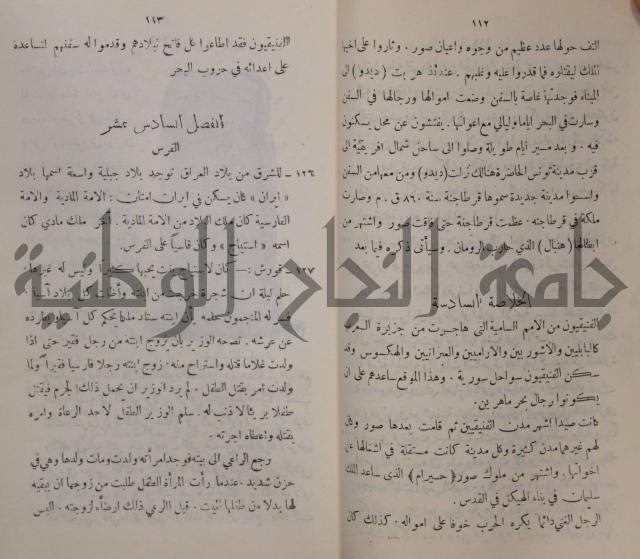 ١١٢
التف حولها عدد عظيم من وجوه واعيان صور . وثاروا على اخيها
الملك ليقتلوه فما قدروا عليه وغلبهم . عندئذ هربت (ديدو) الى
الميناء فوجدتها غاصة بالسفن وضعت اموالها ورجالها في السفن
وسارت في البحر اياما وليالي مع اعوانها . يفتشون عن محل يسكنون
فيه . و بعد مسير ايام طويلة وصلوا الى ساحل شمال افريقية الى
قرب مدينة تونس الحاضرة هنالك نزلت (ديدو) ومن معها من السفن
واسسوا مدينة جديدة سموها قرطاجنة سنة ٨٦٠ ق . م وصارت
ملكة في قرطاجنه . عظمت قرطاجنة حتى فاقت صور واشتهر من
ابطالها (هنبال) الذي حارب الرومان . وسيأتى ذكره فيما بعد
الخلاصة السادسة
الفنيقيون من الأمم السامية التى هاجرت من جزيرة العرب
كالبابليين والأشوريين والاراميين والعبرانيين والهكسوس وقد
سكن الفنيقيون سواحل سورية . وهذا الموقع ساعدهم على ان
يكونوا رجال بحر ماهرين .
كانت صيدا اشهر مدن الفنيقيين ثم قامت بعدها صور وكان
لهم غيرهما مدن كثيرة وكل مدينة كانت مستقلة في اشغالها عن
اخواتها . واشتهر من ملوك صور (حيرام) الذى ساعد الملك
سليمان في بناء الهيكل في القدس .
الرجل الغني دائما يكره الحرب خوفا على امواله . كذلك كان
١١٣
الفنيقيون فقد اطاعوا كل فاتح لبلادهم وقدموا له سفنهم لتساعده
على اعدائه في حروب البحر
الفصل السادس عشر
الفرس
١٢٦ - للشرق من بلاد العراق توجد بلاد جبلية واسعة اسمها بلاد
« ايران » كان يسكن في ايران امتان : الامة المادية والامة
الفارسية كان ملك البلاد من الامة المادية . آخر ملك مادي كان
اسمه « استياج » وكان قاسياً على الفرس .
١٢٧ - قورش : — كان لاستياج بنت يحبها كثيراً وليس له غيرها
حلم ليلة ان شجرة خرجت من ابنته وأظلت كل بلاد آسيا
فسر له المنجمون حلمه بأن ابنته ستلد ملكا يحكم كل آسيا ويطرده
عن عرشه . نصحه الوزير بأن يزوج ابنته من رجل فقير حتى اذا
ولدت غلاما قتله واستراح منه . زوج ابنته رجلا فارسيا فقيراً ولما
ولدت امر بقتل الطفل . لم يرد الوزير ان يحمل ذلك الجرم فيقتل
طفلا بريئا لا ذنب له . سلم الوزير الطفل لاحد الرعاة وامره
بقتله واعطاه اجرته .
رجع الراعي الى بيته فوجد امرأته ولدت ومات ولدها وهي في
حزن شديد . عندما رأت المرأة الطفل طلبت من زوجها ان يبقيه
لها بدلا من طفلها الميت . قبل الراعي ذلك ارضاء لزوجته . البس
جامعة النجاح الوطنية